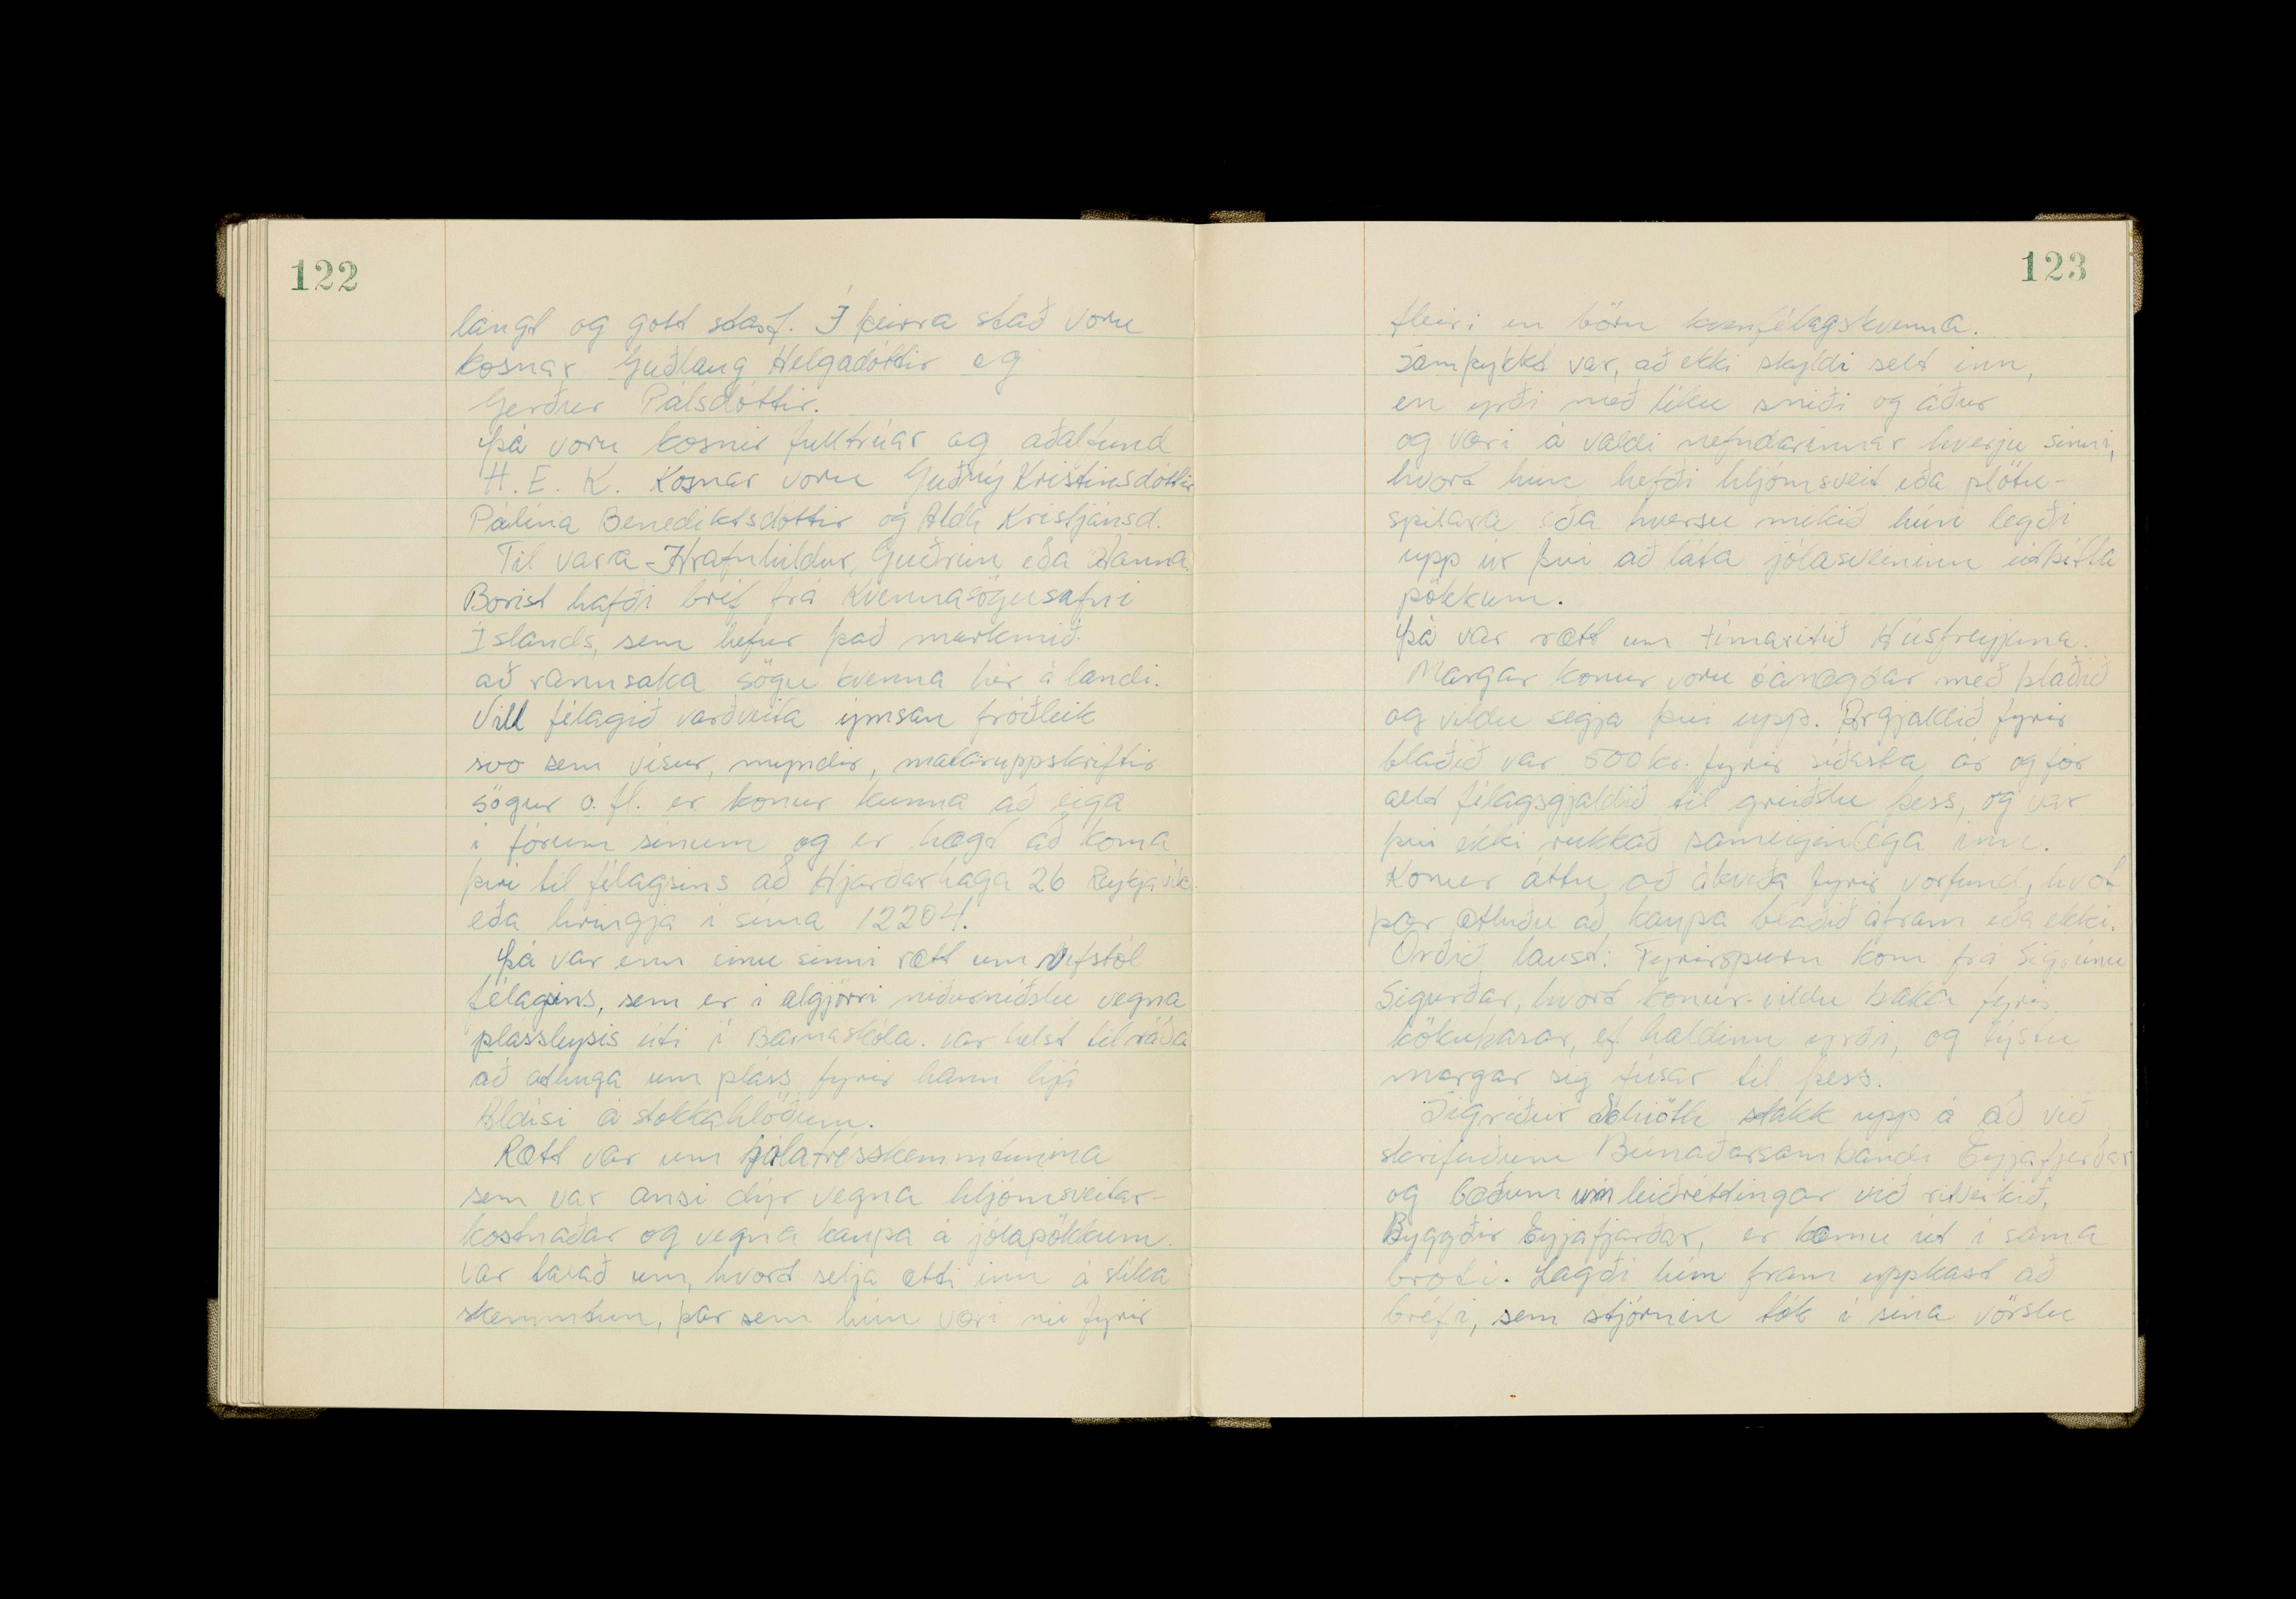 122
langt og gott starf. Í þeirra stað voru
kosnar Guðlaug Helgadóttir og
Gerður Pálsdóttir.
Þá voru kosnir fulltrúar og aðalfund
H.E.K. Kosnar voru Guðný Kristinsdóttir
Pálína Benediktsdóttir og Alda Kristjánsd.
Til vara - Hrafnhildur, Guðrún eða Hanna.
Borist hafði bréf frá Kvennasögusafni
Íslands, sem hefur það markmið
að rannsaka sögu kvenna hér á landi.
Vill félagið varðveita ýmsan fróðleik
svo sem vísur, myndir, mataruppskriftir
sögur o.fl. er konur kunna að eiga
í fórum sínum og er hægt að koma
því til félagsins að Hjarðarhaga 26 Reykjavík
eða hringja í síma 12204.
Þá var enn einu sinni rætt um vefstól
félagsins, sem er í algjörri niðurníðslu vegna
plássleysis úti í Barnaskóla. Var helst til ráða
að athuga um pláss fyrir hann hjá
Aldísi á Stokkahlöðum.
Rætt var um jólatrésskemmtunina
sem var ansi dýr vegna hljómsveitar-
kostnaðar og vegna kaupa á jólapökkum.
Var talað um, hvort selja ætti inn á slíka
skemmtun, þar sem hún væri nú fyrir
123
fleiri en börn kvenfélagskvenna.
Samþykkt var, að ekki skyldi selt inn,
en yrði með líku sniði og áður
og væri á valdi nefndarinnar hverju sinni,
hvort hún hefði hljómsveit eða plötu-
spilara eða hversu mikið hún legði
upp úr því að láta jólasveininn útbýtta
pökkum.
Þá var rætt um tímaritið Húsfreyjuna.
Margar konur voru óánægðar með blaðið
og vildu segja því upp. Árgjaldið fyrir
blaðið var 500 kr. fyrir síðasta ár og fór
allt félagsgjaldið til greiðslu þess, og var
því ekki rukkað sameiginlega inn.
Konur áttu að ákveða fyrir vorfund, hvort
þær ætluðu að kaupa blaðið áfram eða ekki.
Orðið laust: Fyrirspurn kom frá Sigrúnu
Sigurðar, hvort konur vildu baka fyrir
kökubasar, ef haldinn yrði, og lýstu
margar sig fúsar til þess.
Sigríður Schiöth stakk upp á að við
skrifuðum Búnaðarsambandi Eyjafjarðar
og bæðum um leiðréttingar við ritverkið,
Byggðir Eyjafjarðar, er kæmu út í sama
broti. Lagði hún fram uppkast að
bréfi, sem stjórnin tók í sína vörslu